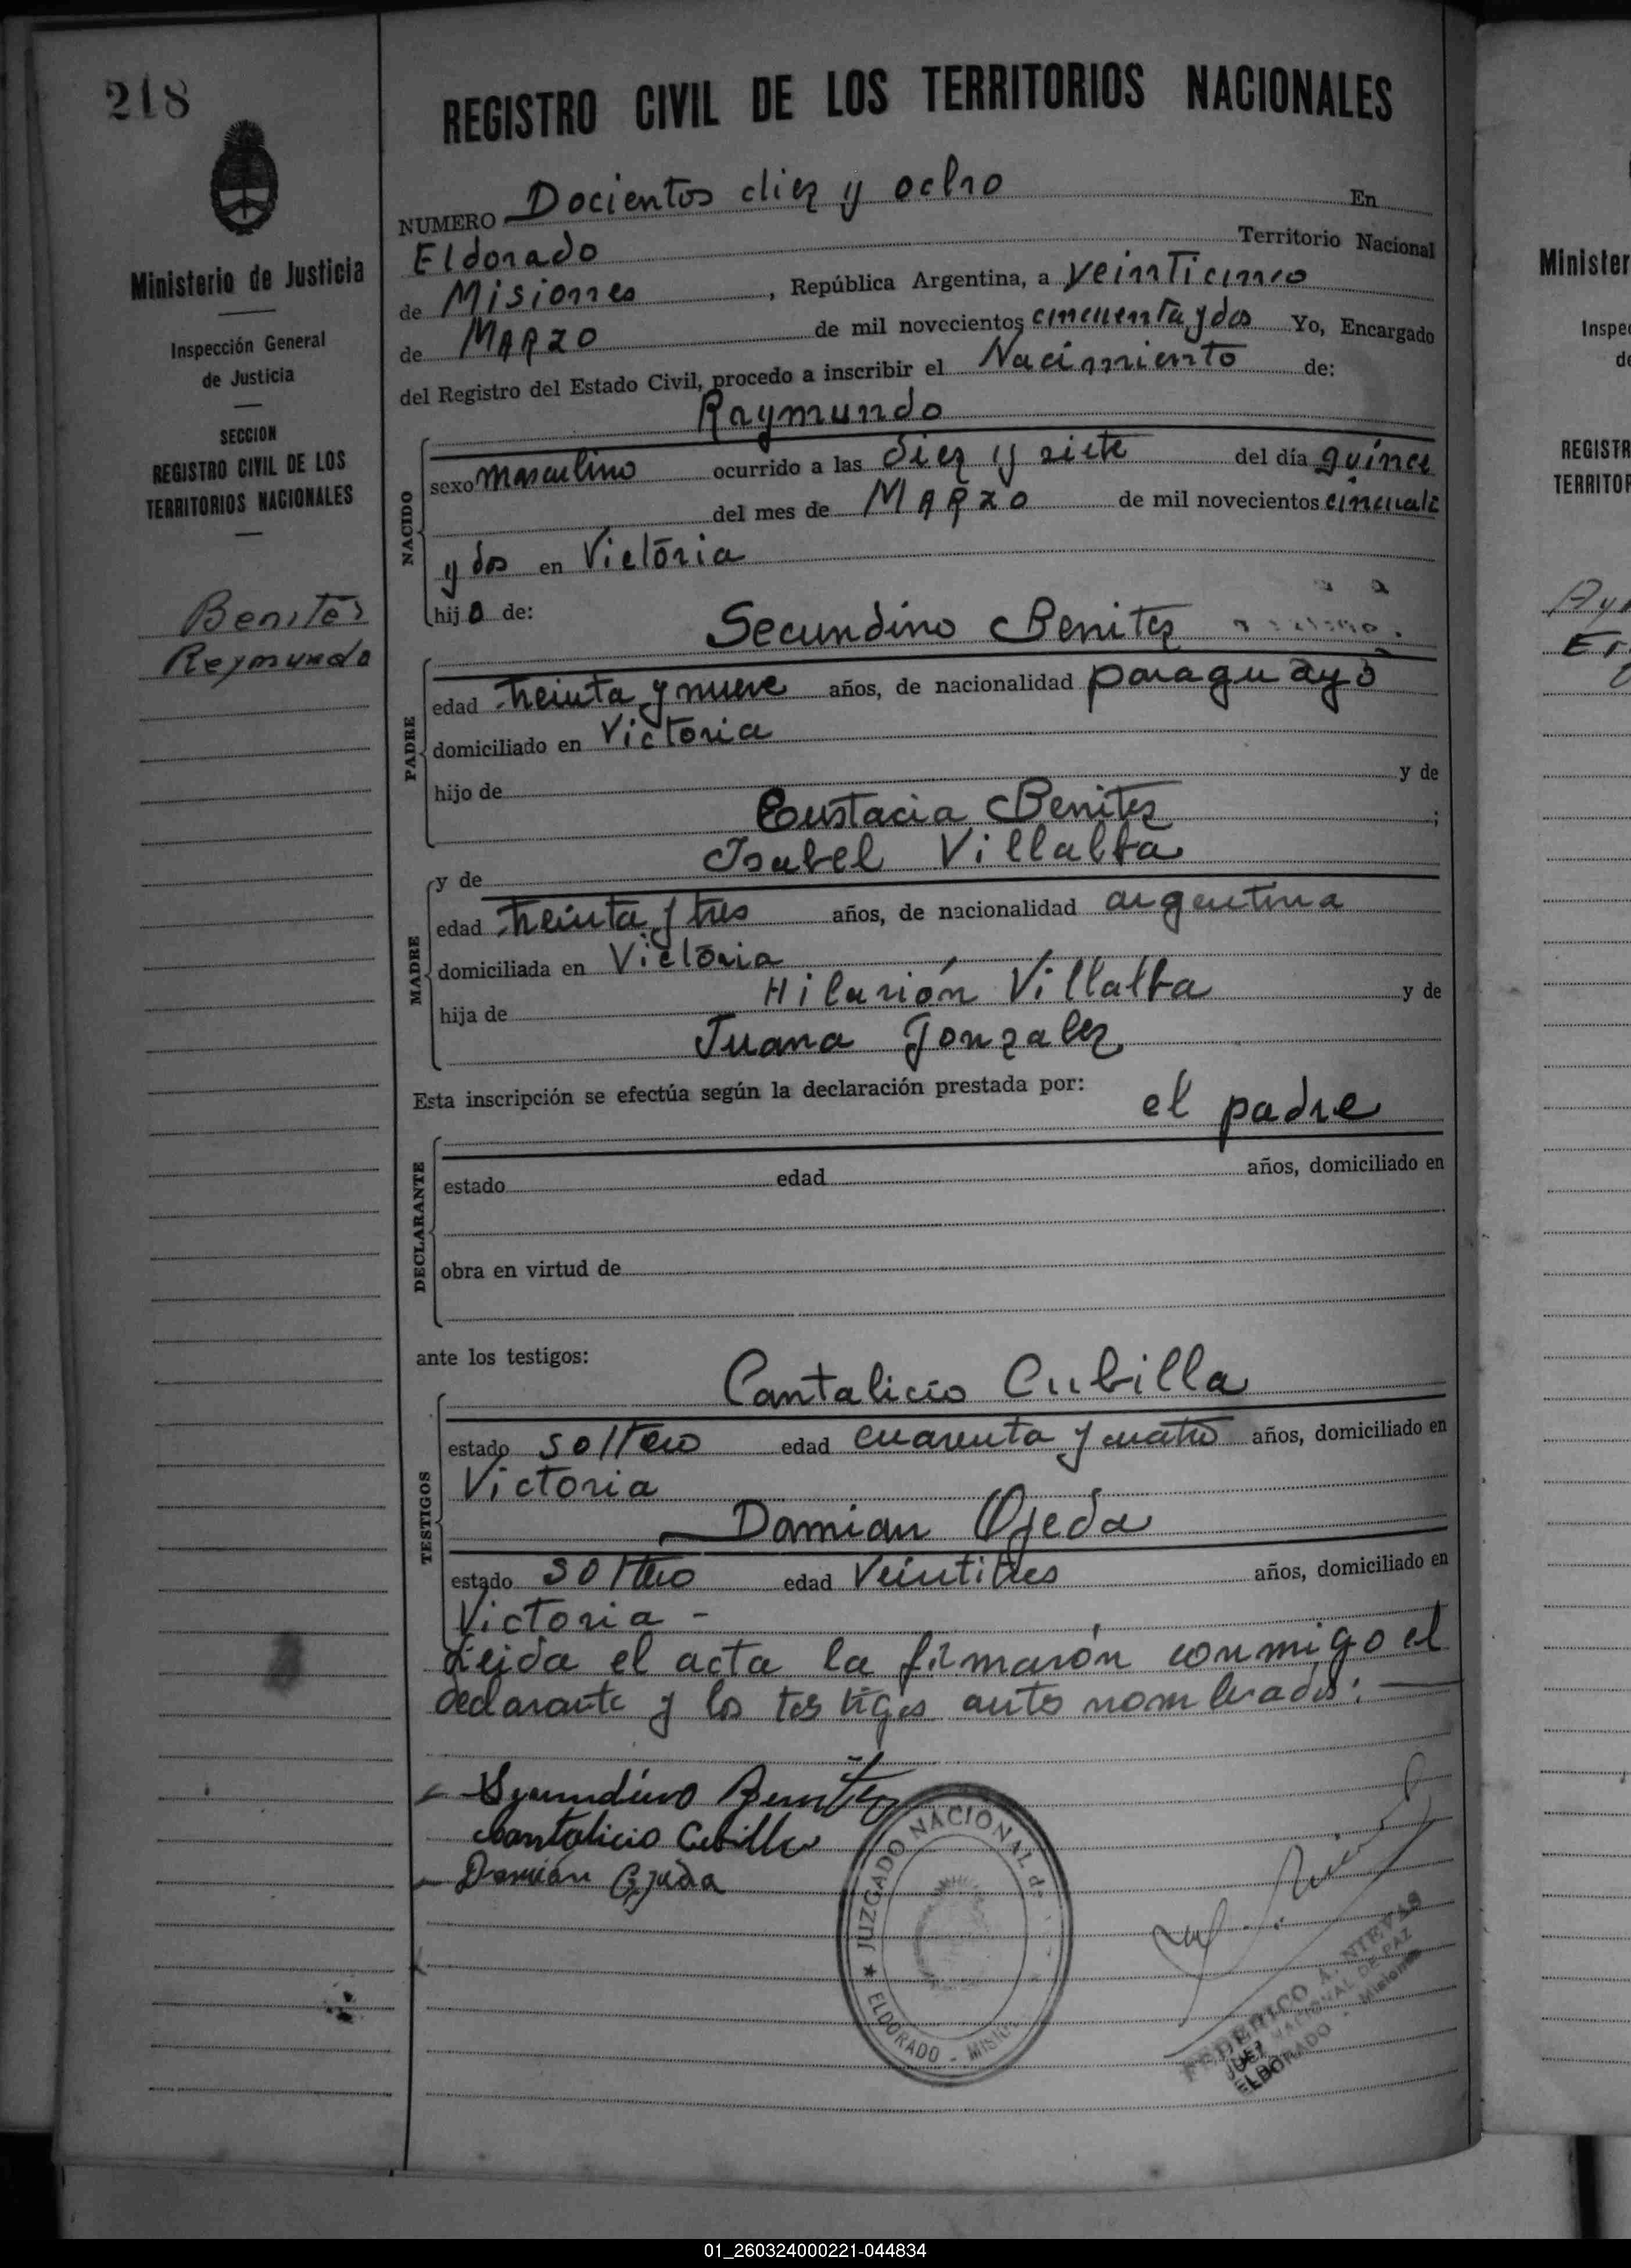 218
Ministerio de Justicia
Inspección General
de Justicia
SECCION
REGISTRO CIVIL DE LOS
TERRITORIOS NACIONALES
Benites
Reymundo
REGISTRO CIVIL DE LOS TERRITORIOS NACIONALES
NUMERO Docientos diez y ocho En
Eldorado Territorio Nacional
de Misiones, República Argentina, a veinticinco
de MARZO de mil novecientos cincuenta y dos Yo, Encargado
del Registro del Estado Civil, procedo a inscribir el Nacimiento de:
Raymundo
NACIDO
sexo masculino ocurrido a las diez y siete del día quince
del mes de MARZO de mil novecientos
y dos en Victoria
hijo de:
Secundino Benitez
PADRE
edad treinta y nueve años, de nacionalidad paraguayo
domiciliado en Victoria
hijo de y de
Eustacia Benitez ;
y de Isabel Villalba
MADRE
edad treinta y tres años, de nacionalidad argentina
domiciliada en Victoria
hija de Hilarión Villalba y de
Juana Gonzalez
Esta inscripción se efectúa según la declaración prestada por:
el padre
DECLARANTE
estado edad años, domiciliado en
obra en virtud de
ante los testigos:
Cantalicio Cubilla
TESTIGOS
estado soltero edad cuarenta y cuatro años, domiciliado en
Victoria
Damian Ojeda
estado soltero edad veintitres años, domiciliado en
Victoria -
Leida el acta la firmarón conmigo el
declarante y los testigos antes nombrados: —
Secundino Benítez
Cantalicio Cubilla
Damián Ojeda
JUZGADO NACIONAL DE
★ ELDORADO - MISIONES
FEDERICO A. NIEVAS
JUEZ NACIONAL DE PAZ
ELDORADO - Misiones
Minister
Inspe
de
REGISTR
TERRITOR
01_260324000221-044834